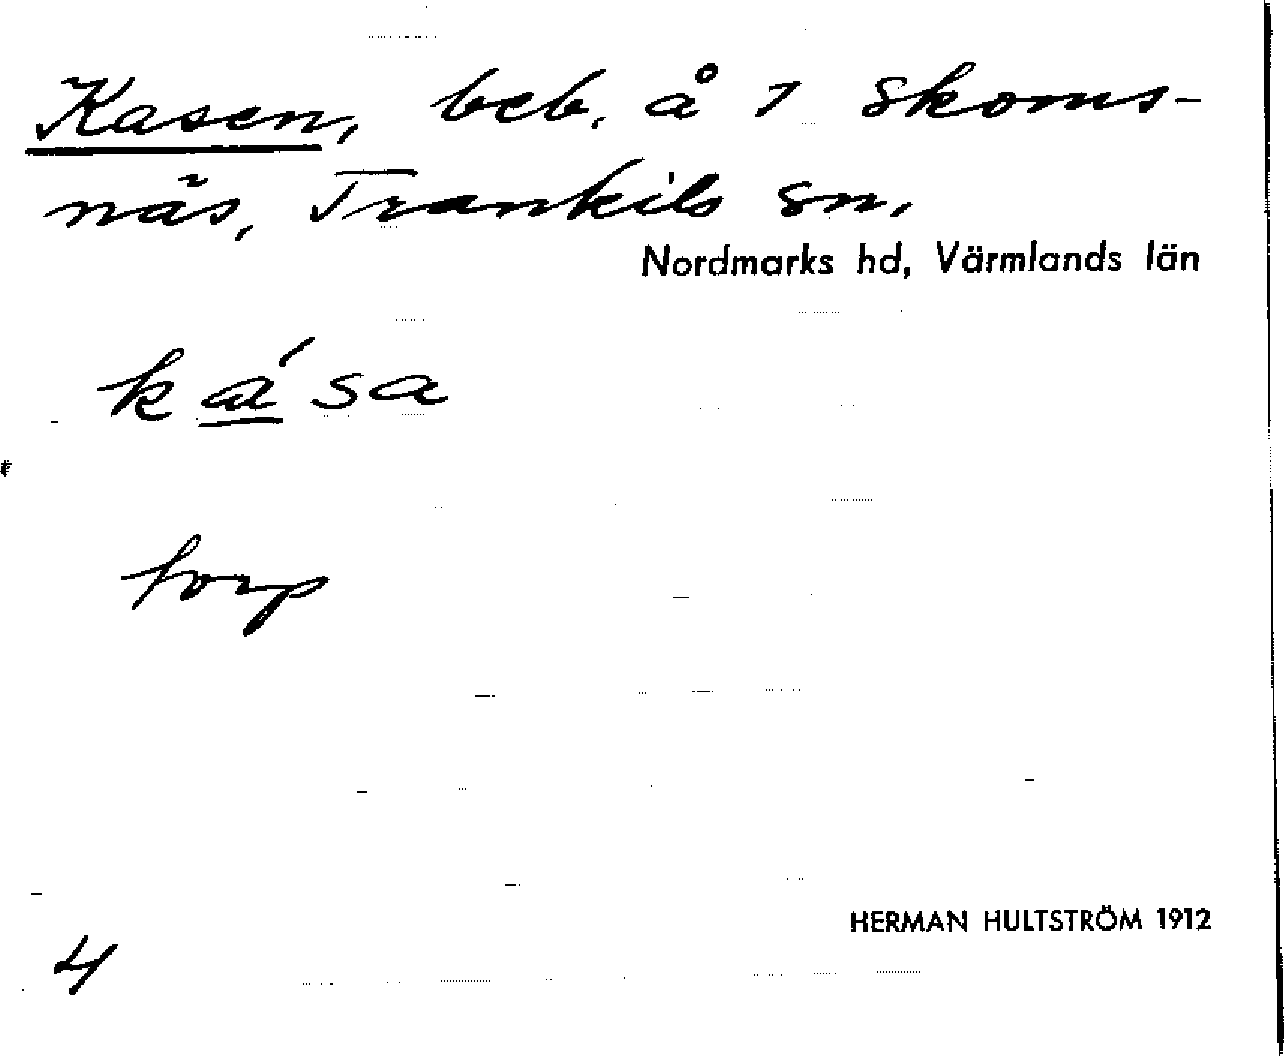 Kasen, beb. å 1 Skoms-
näs, Trankils sn.
Nordmarks hd, Värmlands län
kása
torp
HERMAN HULTSTRÖM 1912
4